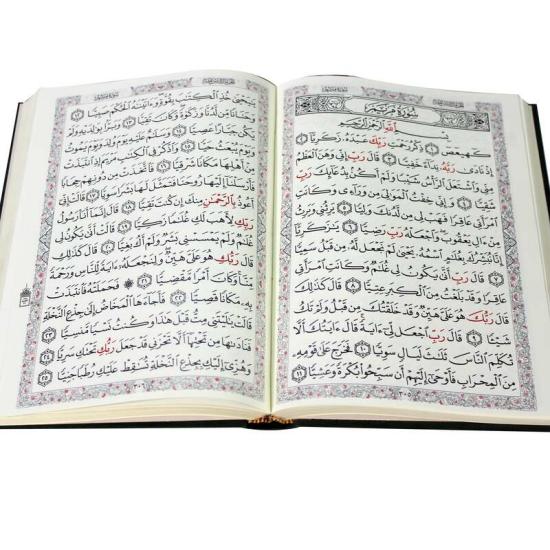 سُورَةُ مَرْيَمَ
بِسْمِ اللَّهِ الرَّحْمَٰنِ الرَّحِيمِ
كٓهيعٓصٓ ١ ذِكْرُ رَحْمَتِ رَبِّكَ عَبْدَهُۥ زَكَرِيَّآ ٢
إِذْ نَادَىٰ رَبَّهُۥ نِدَآءً خَفِيًّا ٣ قَالَ رَبِّ إِنِّى وَهَنَ ٱلْعَظْمُ
مِنِّى وَٱشْتَعَلَ ٱلرَّأْسُ شَيْبًا وَلَمْ أَكُنۢ بِدُعَآئِكَ رَبِّ
شَقِيًّا ٤ وَإِنِّى خِفْتُ ٱلْمَوَٰلِىَ مِن وَرَآءِى وَكَانَتِ
ٱمْرَأَتِى عَاقِرًا فَهَبْ لِى مِن لَّدُنكَ وَلِيًّا ٥ يَرِثُنِى وَيَرِثُ
مِنْ ءَالِ يَعْقُوبَ وَٱجْعَلْهُ رَبِّ رَضِيًّا ٦ يَٰزَكَرِيَّآ
إِنَّا نُبَشِّرُكَ بِغُلَٰمٍ ٱسْمُهُۥ يَحْيَىٰ لَمْ نَجْعَل لَّهُۥ مِن قَبْلُ سَمِيًّا
٧ قَالَ رَبِّ أَنَّىٰ يَكُونُ لِى غُلَٰمٌ وَكَانَتِ ٱمْرَأَتِى
عَاقِرًا وَقَدْ بَلَغْتُ مِنَ ٱلْكِبَرِ عِتِيًّا ٨ قَالَ كَذَٰلِكَ
قَالَ رَبُّكَ هُوَ عَلَىَّ هَيِّنٌ وَقَدْ خَلَقْتُكَ مِن قَبْلُ وَلَمْ تَكُ
شَيْـًٔا ٩ قَالَ رَبِّ ٱجْعَل لِّىٓ ءَايَةً قَالَ ءَايَتُكَ أَلَّا
تُكَلِّمَ ٱلنَّاسَ ثَلَٰثَ لَيَالٍ سَوِيًّا ١٠ فَخَرَجَ عَلَىٰ قَوْمِهِۦ
مِنَ ٱلْمِحْرَابِ فَأَوْحَىٰٓ إِلَيْهِمْ أَن سَبِّحُوا۟ بُكْرَةً وَعَشِيًّا ١١
٣٠٥
يَٰيَحْيَىٰ خُذِ ٱلْكِتَٰبَ بِقُوَّةٍ وَءَاتَيْنَٰهُ ٱلْحُكْمَ صَبِيًّا ١٢
وَحَنَانًا مِّن لَّدُنَّا وَزَكَوٰةً وَكَانَ تَقِيًّا ١٣ وَبَرًّۢا بِوَٰلِدَيْهِ وَلَمْ
يَكُن جَبَّارًا عَصِيًّا ١٤ وَسَلَٰمٌ عَلَيْهِ يَوْمَ وُلِدَ وَيَوْمَ يَمُوتُ
وَيَوْمَ يُبْعَثُ حَيًّا ١٥ وَٱذْكُرْ فِى ٱلْكِتَٰبِ مَرْيَمَ إِذِ ٱنتَبَذَتْ
مِنْ أَهْلِهَا مَكَانًا شَرْقِيًّا ١٦ فَٱتَّخَذَتْ مِن دُونِهِمْ حِجَابًا
فَأَرْسَلْنَآ إِلَيْهَا رُوحَنَا فَتَمَثَّلَ لَهَا بَشَرًا سَوِيًّا ١٧ قَالَتْ إِنِّىٓ
أَعُوذُ بِٱلرَّحْمَٰنِ مِنكَ إِن كُنتَ تَقِيًّا ١٨ قَالَ إِنَّمَآ أَنَا۠ رَسُولُ
رَبِّكِ لِأَهَبَ لَكِ غُلَٰمًا زَكِيًّا ١٩ قَالَتْ أَنَّىٰ يَكُونُ لِى
غُلَٰمٌ وَلَمْ يَمْسَسْنِى بَشَرٌ وَلَمْ أَكُ بَغِيًّا ٢٠ قَالَ كَذَٰلِكِ
قَالَ رَبُّكِ هُوَ عَلَىَّ هَيِّنٌ وَلِنَجْعَلَهُۥٓ ءَايَةً لِّلنَّاسِ وَرَحْمَةً
مِّنَّا وَكَانَ أَمْرًا مَّقْضِيًّا ٢١ فَحَمَلَتْهُ فَٱنتَبَذَتْ
بِهِۦ مَكَانًا قَصِيًّا ٢٢ فَأَجَآءَهَا ٱلْمَخَاضُ إِلَىٰ جِذْعِ ٱلنَّخْلَةِ
قَالَتْ يَٰلَيْتَنِى مِتُّ قَبْلَ هَٰذَا وَكُنتُ نَسْيًا مَّنسِيًّا ٢٣
فَنَادَىٰهَا مِن تَحْتِهَآ أَلَّا تَحْزَنِى قَدْ جَعَلَ رَبُّكِ تَحْتَكِ سَرِيًّا ٢٤
وَهُزِّىٓ إِلَيْكِ بِجِذْعِ ٱلنَّخْلَةِ تُسَٰقِطْ عَلَيْكِ رُطَبًا جَنِيًّا ٢٥
٣٠٦